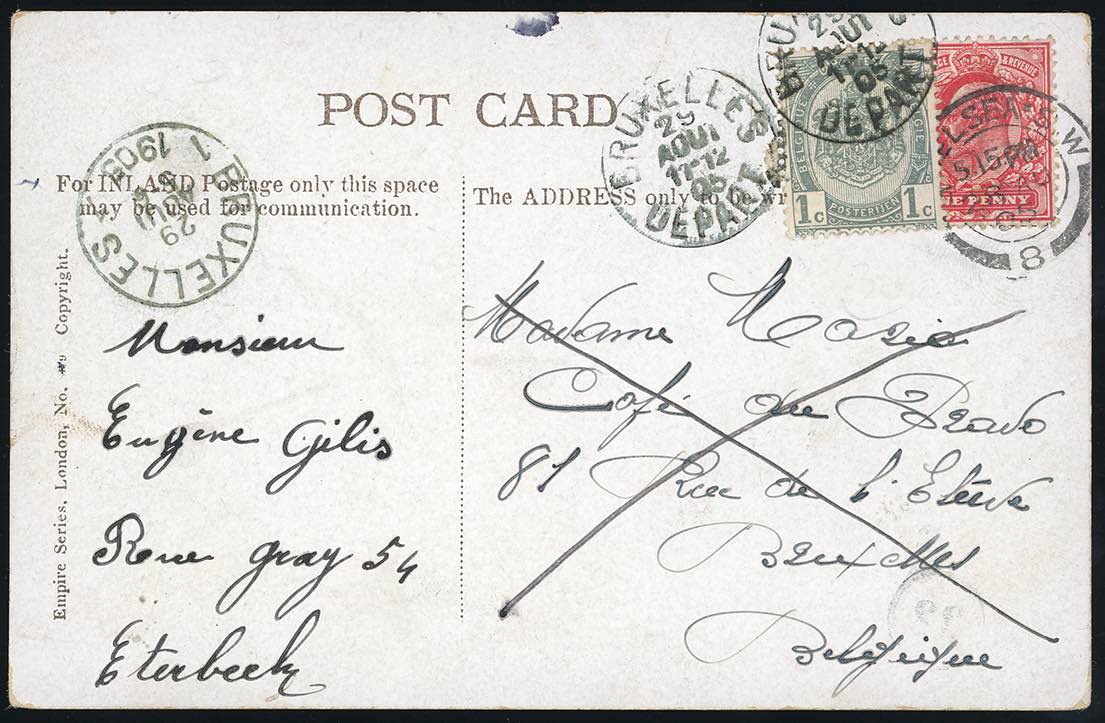 POST CARD
For INLAND Postage only this space
may be used for communication.
The ADDRESS only to be wr
Empire Series, London, No. Copyright.
1 BRUXELLES 1
29
1905
BRUXELLES
29
AOUT
11-12
05
DEPART
BRU
29
AOUT
11-12
05
DEPART
BELGIQUE
POSTERIJEN
1c 1c
& REVENUE
NE PENNY
ELSEA S.W
5.15 PM
05
8
Monsieur
Eugène Gilis
Rue gray 54
Eterbeek
Madame
Café du Prado
81 Rue de l'
Bruxelles
Belgique